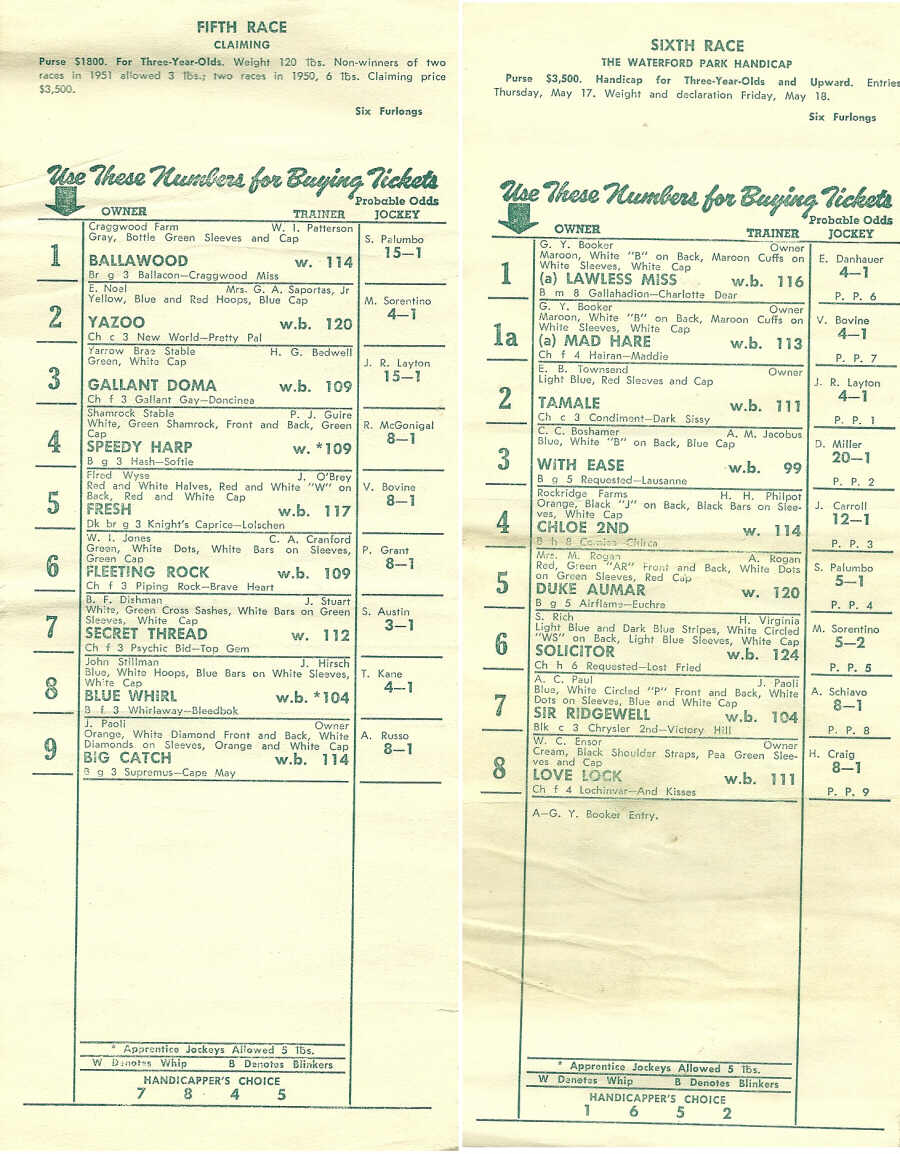 FIFTH RACE
CLAIMING
Purse $1800. For Three-Year-Olds. Weight 120 lbs. Non-winners of two
races in 1951 allowed 3 lbs.; two races in 1950, 6 lbs. Claiming price
$3,500.
Six Furlongs
Use These Numbers for Buying Tickets
Probable Odds
OWNER TRAINER JOCKEY
Craggwood Farm W. I. Patterson
Gray, Bottle Green Sleeves and Cap
S. Palumbo
1 BALLAWOOD w. 114 15—1
Br g 3 Ballacon—Craggwood Miss
E. Noel Mrs. G. A. Saportas, Jr
Yellow, Blue and Red Hoops, Blue Cap
M. Sorentino
2 YAZOO w.b. 120 4—1
Ch c 3 New World—Pretty Pal
Yarrow Brae Stable H. G. Bedwell
Green, White Cap
J. R. Layton
3 GALLANT DOMA w.b. 109 15—1
Ch f 3 Gallant Gay—Doncinea
Shamrock Stable P. J. Guire
White, Green Shamrock, Front and Back, Green
Cap
R. McGonigal
4 SPEEDY HARP w. *109 8—1
B g 3 Hash—Softie
Elred Wyse J. O'Brey
Red and White Halves, Red and White "W" on
Back, Red and White Cap
V. Bovine
5 FRESH w.b. 117 8—1
Dk br g 3 Knight's Caprice—Lolschen
W. I. Jones C. A. Cranford
Green, White Dots, White Bars on Sleeves,
Green Cap
P. Grant
6 FLEETING ROCK w.b. 109 8—1
Ch f 3 Piping Rock—Brave Heart
B. F. Dishman J. Stuart
White, Green Cross Sashes, White Bars on Green
Sleeves, White Cap
S. Austin
7 SECRET THREAD w. 112 3—1
Ch f 3 Psychic Bid—Top Gem
John Stillman J. Hirsch
Blue, White Hoops, Blue Bars on White Sleeves,
White Cap
T. Kane
8 BLUE WHIRL w.b. *104 4—1
B f 3 Whirlaway—Bleedbok
J. Paoli Owner
Orange, White Diamond Front and Back, White
Diamonds on Sleeves, Orange and White Cap
A. Russo
9 BIG CATCH w.b. 114 8—1
B g 3 Supremus—Cape May
* Apprentice Jockeys Allowed 5 lbs.
W Denotes Whip B Denotes Blinkers
HANDICAPPER'S CHOICE
7 8 4 5
SIXTH RACE
THE WATERFORD PARK HANDICAP
Purse $3,500. Handicap for Three-Year-Olds and Upward. Entries
Thursday, May 17. Weight and declaration Friday, May 18.
Six Furlongs
Use These Numbers for Buying Tickets
Probable Odds
OWNER TRAINER JOCKEY
G. Y. Booker Owner
Maroon, White "B" on Back, Maroon Cuffs on
White Sleeves, White Cap
E. Danhauer
4—1
1 (a) LAWLESS MISS w.b. 116
B m 8 Gallahadion—Charlotte Dear P. P. 6
G. Y. Booker Owner
Maroon, White "B" on Back, Maroon Cuffs on
White Sleeves, White Cap
V. Bovine
4—1
1a (a) MAD HARE w.b. 113
Ch f 4 Hairan—Maddie P. P. 7
E. B. Townsend Owner
Light Blue, Red Sleeves and Cap
J. R. Layton
4—1
2 TAMALE w.b. 111
Ch c 3 Condiment—Dark Sissy P. P. 1
C. C. Boshamer A. M. Jacobus
Blue, White "B" on Back, Blue Cap
D. Miller
20—1
3 WITH EASE w.b. 99
B g 5 Requested—Lausanne P. P. 2
Rockridge Farms H. H. Philpot
Orange, Black "J" on Back, Black Bars on Slee-
ves, White Cap
J. Carroll
12—1
4 CHLOE 2ND w. 114
B h 8 Chirca P. P. 3
Mrs. M. Rogan A. Rogan
Red, Green "AR" Front and Back, White Dots
on Green Sleeves, Red Cap
S. Palumbo
5—1
5 DUKE AUMAR w. 120
B g 5 Airflame—Euchre P. P. 4
S. Rich H. Virginia
Light Blue and Dark Blue Stripes, White Circled
"WS" on Back, Light Blue Sleeves, White Cap
M. Sorentino
5—2
6 SOLICITOR w.b. 124
Ch h 6 Requested—Lost Fried P. P. 5
A. C. Paul J. Paoli
Blue, White Circled "P" Front and Back, White
Dots on Sleeves, Blue and White Cap
A. Schiavo
8—1
7 SIR RIDGEWELL w.b. 104
Blk c 3 Chrysler 2nd—Victory Hill P. P. 8
W. C. Ensor Owner
Cream, Black Shoulder Straps, Pea Green Slee-
ves and Cap
H. Craig
8—1
8 LOVE LOCK w.b. 111
Ch f 4 Lochinvar—And Kisses P. P. 9
A—G. Y. Booker Entry.
* Apprentice Jockeys Allowed 5 lbs.
W Denotes Whip B Denotes Blinkers
HANDICAPPER'S CHOICE
1 6 5 2